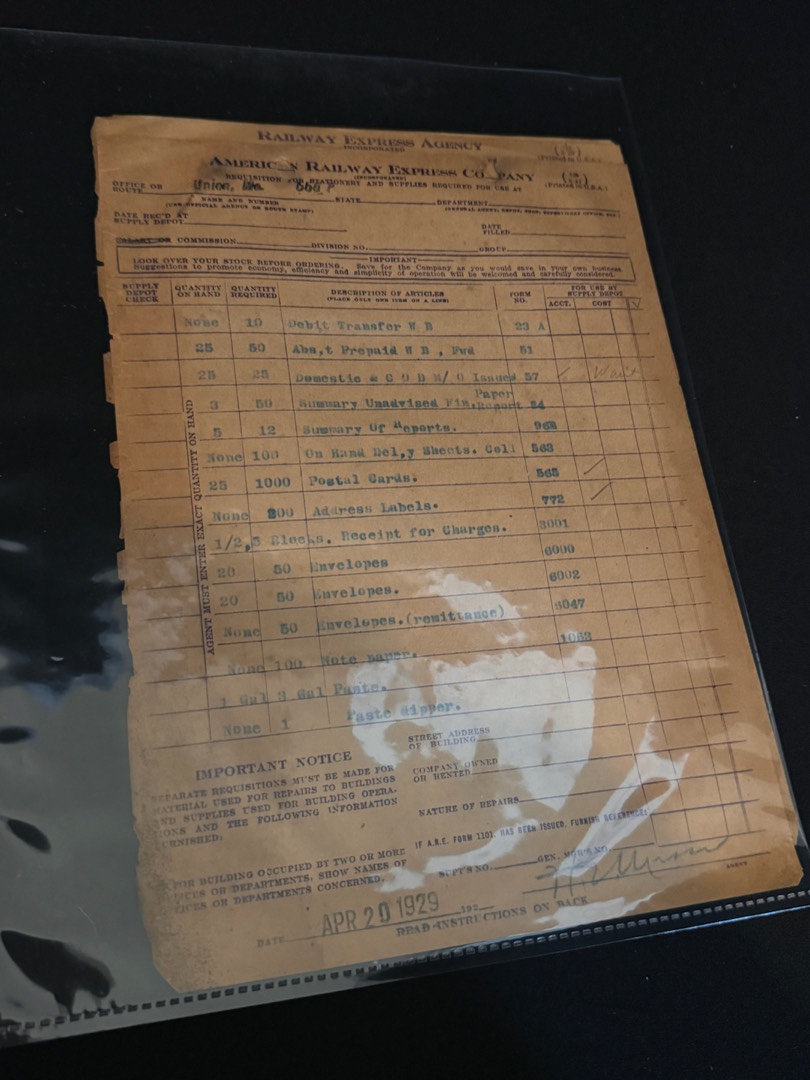 RAILWAY EXPRESS AGENCY
INCORPORATED
AMERICAN RAILWAY EXPRESS COMPANY
(INCORPORATED)
(PRINTED IN U.S.A.)
REQUISITION FOR STATIONERY AND SUPPLIES REQUIRED FOR USE AT
OFFICE OR ROUTE Union, Mo.
NAME AND NUMBER STATE DEPARTMENT
DATE REC'D AT SUPPLY DEPOT
DATE FILLED
COMMISSION DIVISION NO. GROUP
IMPORTANT
LOOK OVER YOUR STOCK BEFORE ORDERING. Save for the Company as you would save in your own business
Suggestions to promote economy, efficiency and simplicity of operation will be welcomed and carefully considered.
SUPPLY DEPOT CHECK QUANTITY ON HAND QUANTITY REQUIRED DESCRIPTION OF ARTICLES FORM NO. FOR USE BY SUPPLY DEPOT
(PLACE ONLY ONE ITEM ON A LINE) ACCT. COST
None 10 Debit Transfer W B 23 A
25 50 Abs,t Prepaid W B , Fwd 51
25 25 Domestic & C O D M/ O Issued 57
Paper
3 50 Summary Unadvised Fin,Report 54
5 12 Summary Of Reports. 968
None 100 On Hand Del,y Sheets. Coll 563
25 1000 Postal Cards. 565
None 200 Address Labels. 772
1/2,5 Blocks. Receipt for Charges. 3001
20 50 Envelopes 6000
20 50 Envelopes. 6002
None 50 Envelopes.(remittance) 6047
None 100 Note paper. 1053
1 Gal 3 Gal Paste.
None 1 Paste dipper.
AGENT MUST ENTER EXACT QUANTITY ON HAND
IMPORTANT NOTICE
SEPARATE REQUISITIONS MUST BE MADE FOR
MATERIAL USED FOR REPAIRS TO BUILDINGS
AND SUPPLIES USED FOR BUILDING OPERA-
TIONS AND THE FOLLOWING INFORMATION
FURNISHED:
STREET ADDRESS OF BUILDING
COMPANY OWNED OR RENTED
NATURE OF REPAIRS
IF A.R.E. FORM 1303 HAS BEEN ISSUED, FURNISH REFERENCES
SUPT'S NO. GEN. MGR'S NO.
FOR BUILDING OCCUPIED BY TWO OR MORE
OFFICES OR DEPARTMENTS, SHOW NAMES OF
OFFICES OR DEPARTMENTS CONCERNED.
AGENT
DATE APR 20 1929 192
READ INSTRUCTIONS ON BACK